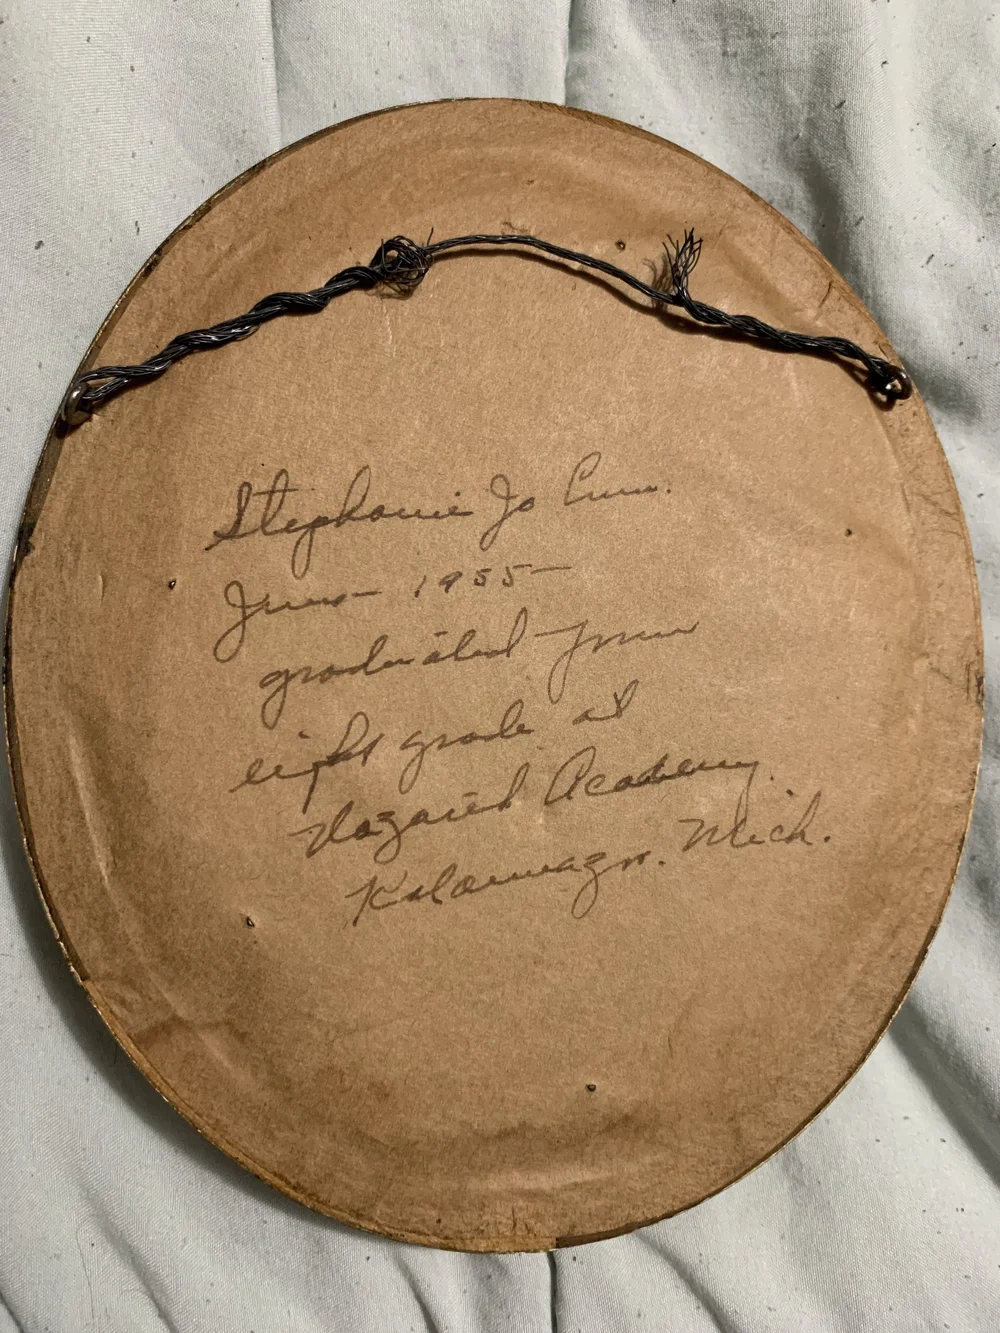 Stephanie Jo
June - 1955 -
graduated from
eight grade at
Nazareth Academy.
Kalamazoo. Mich.